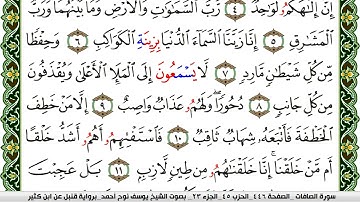 إِنَّ إِلَٰهَكُمُۥ لَوَٰحِدٌ ٤ رَّبُّ ٱلسَّمَٰوَٰتِ وَٱلْأَرْضِ وَمَا بَيْنَهُمَا وَرَبُّ
ٱلْمَشَٰرِقِ ٥ إِنَّا زَيَّنَّا ٱلسَّمَآءَ ٱلدُّنْيَا بِزِينَةِ ٱلْكَوَاكِبِ ٦ وَحِفْظًا
مِّن كُلِّ شَيْطَٰنٍ مَّارِدٍ ٧ لَا يَسْمَعُونَ إِلَى ٱلْمَلَإِ ٱلْأَعْلَىٰ وَيُقْذَفُونَ
مِن كُلِّ جَانِبٍ ٨ دُحُورًا وَلَهُمُۥ عَذَابٌ وَاصِبٌ ٩ إِلَّا مَنْ خَطِفَ
ٱلْخَطْفَةَ فَأَتْبَعَهُۥ شِهَابٌ ثَاقِبٌ ١٠ فَٱسْتَفْتِهِمُۥ أَهُمُۥ أَشَدُّ خَلْقًا
أَم مَّنْ خَلَقْنَا إِنَّا خَلَقْنَٰهُمُۥ مِن طِينٍ لَّازِبٍ ١١ بَلْ عَجِبْتَ
سورة الصافات _ الصفحة ٤٤٦ _ الجزء ٢٣ _ بصوت الشيخ يوسف نوح أحمد _ برواية قنبل عن ابن كثير